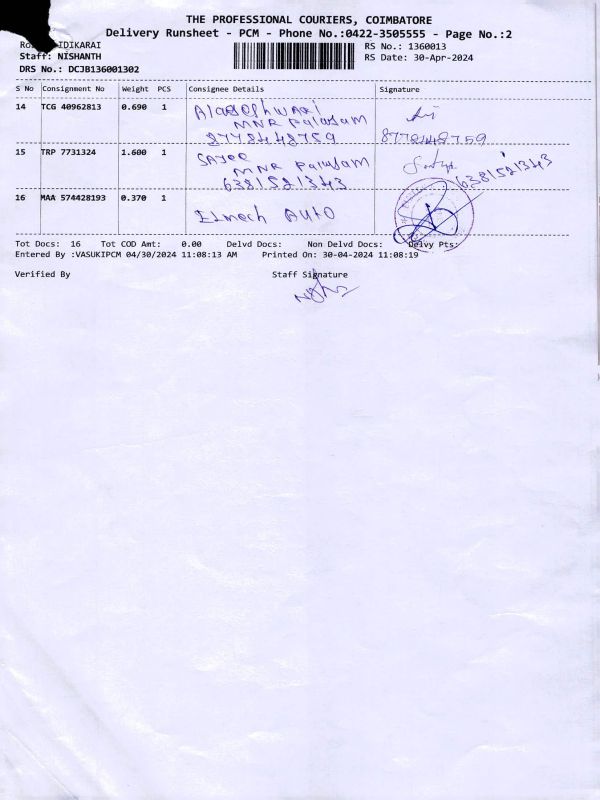 THE PROFESSIONAL COURIERS, COIMBATORE
Delivery Runsheet - PCM - Phone No.:0422-3505555 - Page No.:2
IDIKARAI
RS No.: 1360013
Staff: NISHANTH
RS Date: 30-Apr-2024
DRS No.: DCJB136001302
S No Consignment No Weight PCS Consignee Details Signature
14 TCG 40962813 0.690 1
MNR Palayam
8778448759 8778448759
15 TRP 7731324 1.600 1 Sajee
MNR Palayam
6381521343 6381521343
16 MAA 574428193 0.370 1 Elmech Auto
Tot Docs: 16 Tot COD Amt: 0.00 Delvd Docs: Non Delvd Docs: Delvy Pts:
Entered By :VASUKIPCM 04/30/2024 11:08:13 AM Printed On: 30-04-2024 11:08:19
Verified By Staff Signature